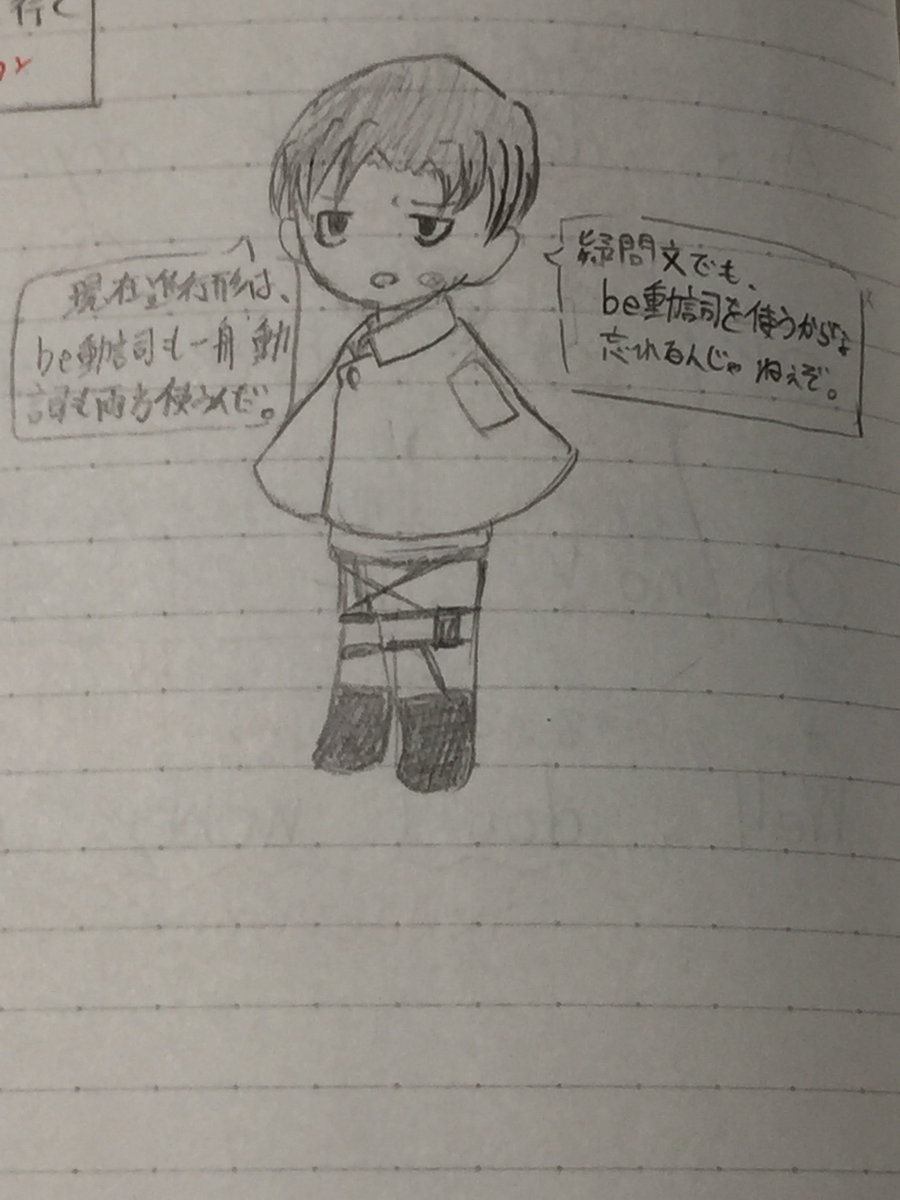 行く
現在進行形は、
be動詞も一般動
詞も両方使うんだ。
疑問文でも、
be動詞を使うからな
忘れるんじゃねえぞ。